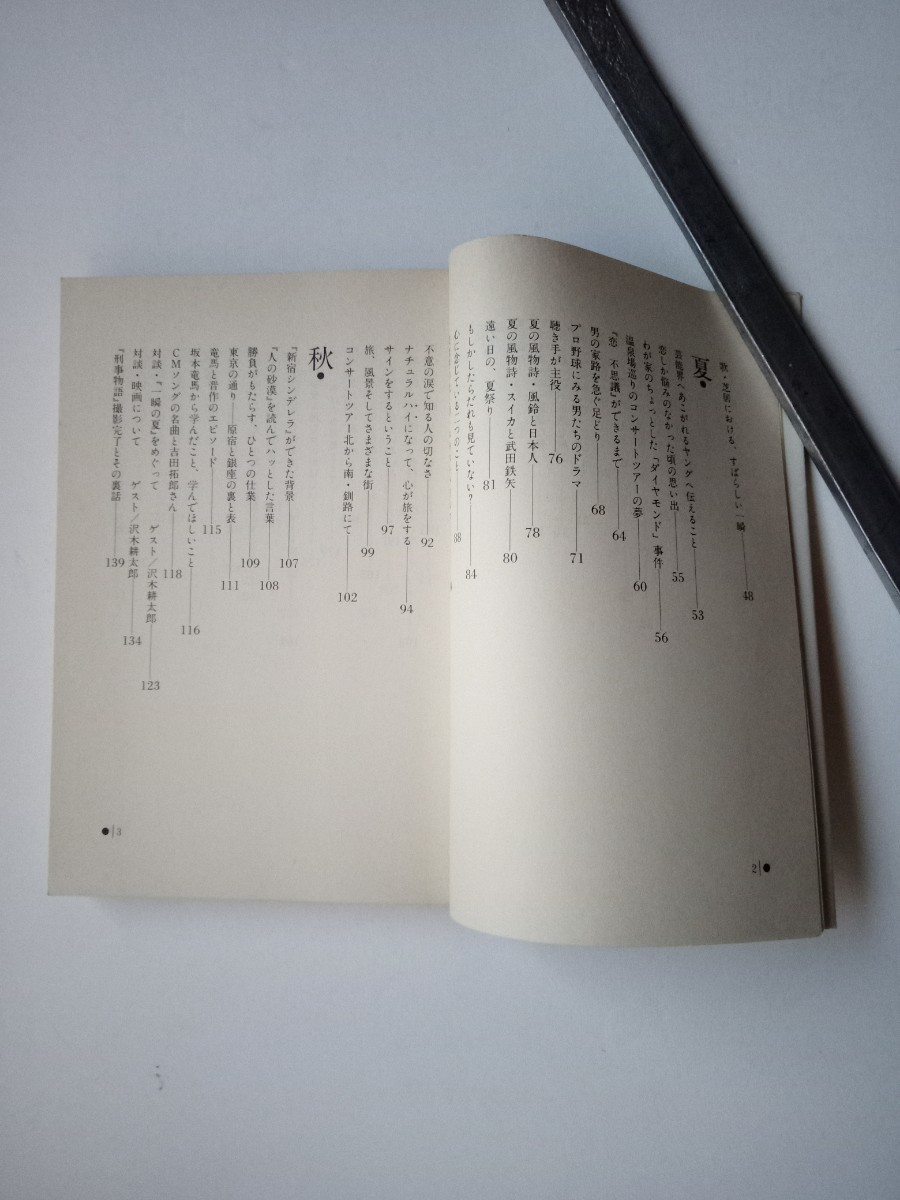 歌・芝居における、すばらしい一瞬 48
夏・
芸能界へあこがれるヤングへ伝えること 53
恋しか悩みのなかった頃の思い出 55
わが家のちょっとした「ダイヤモンド」事件 56
温泉場巡りのコンサートツアーの夢 60
『恋 不思議』ができるまで 64
男の家路を急ぐ足どり 68
プロ野球にみる男たちのドラマ 71
聴き手が主役 76
夏の風物詩・風鈴と日本人 78
夏の風物詩・スイカと武田鉄矢 80
遠い日の、夏祭り 81
もしかしたらだれも見ていない？ 84
心に念じている一つのこと 88
2
不意の涙で知る人の切なさ 92
ナチュラルハイになって、心が旅をする 94
サインをするということ 97
旅、風景そしてさまざまな街 99
コンサートツアー北から南・釧路にて 102
秋・
『新宿シンデレラ』ができた背景 107
『人の砂漠』を読んでハッとした言葉 108
勝負がもたらす、ひとつの仕業 109
東京の通り——原宿と銀座の裏と表 111
竜馬と晋作のエピソード 115
坂本竜馬から学んだこと、学んでほしいこと 116
CMソングの名曲と吉田拓郎さん 118
対談・『一瞬の夏』をめぐって ゲスト／沢木耕太郎 123
対談・映画について ゲスト／沢木耕太郎 134
『刑事物語』撮影完了とその裏話 139
3